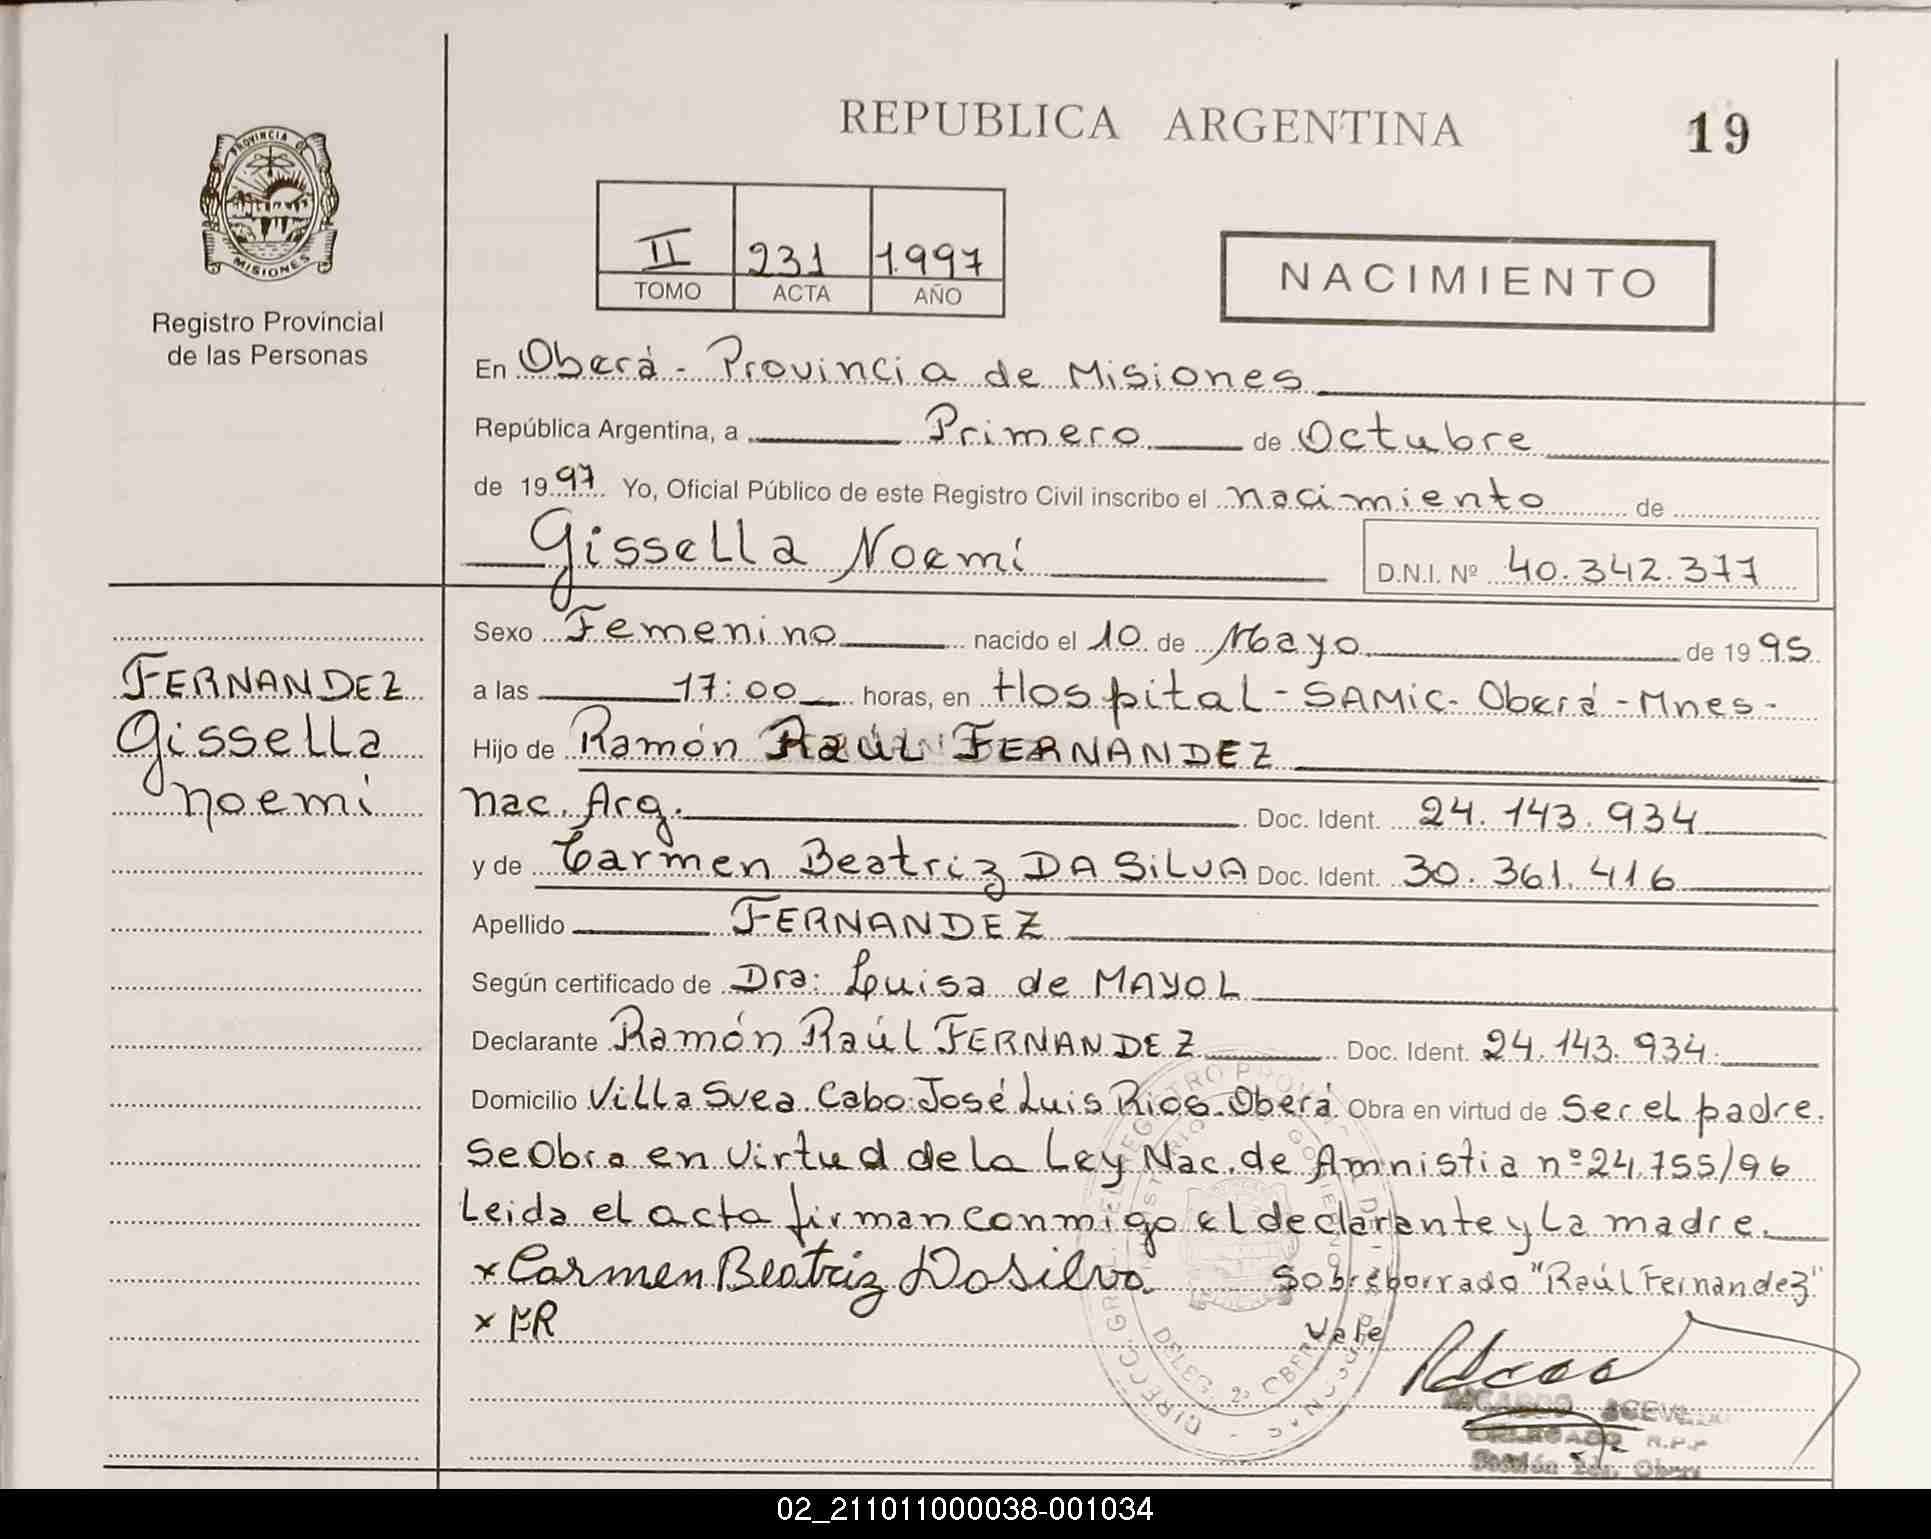 REPUBLICA ARGENTINA
19
PROVINCIA DE
MISIONES
Registro Provincial
de las Personas
II 231 1.997
TOMO ACTA AÑO
NACIMIENTO
En Oberá - Provincia de Misiones
República Argentina, a Primero de Octubre
de 1997 Yo, Oficial Público de este Registro Civil inscribo el nacimiento de
Gissella Noemí
D.N.I. Nº 40.342.377
FERNANDEZ
Gissella
Noemí
Sexo Femenino nacido el 10 de Mayo de 1995
a las 17:00 horas, en Hospital - SAMIC - Oberá - Mnes -
Hijo de Ramón Raúl FERNANDEZ
nac. Arg. Doc. Ident. 24.143.934
y de Carmen Beatriz DA SILVA Doc. Ident. 30.361.416
Apellido FERNANDEZ
Según certificado de Dra: Luisa de MAYOL
Declarante Ramón Raúl FERNANDEZ Doc. Ident. 24.143.934
Domicilio Villa Svea Cabo José Luis Rios - Oberá Obra en virtud de Ser el padre.
Se Obra en virtud de la Ley Nac. de Amnistia nº 24.755/96
Leida el acta firman conmigo el declarante y la madre.
x Carmen Beatriz Da Silva Sobreborrado "Raúl Fernandez"
x FR Vale
DELEGADO R.P.P
02_211011000038-001034